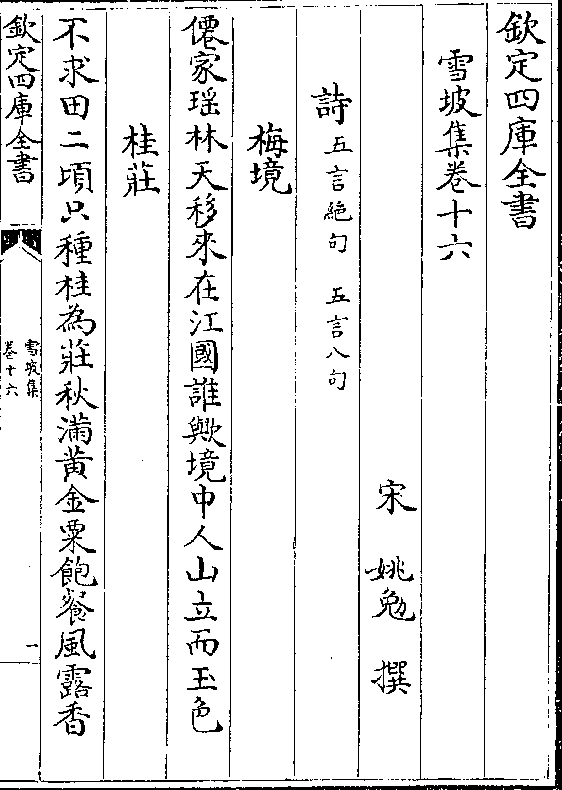 欽定四庫全書
雪坡集卷十六
宋 姚勉 撰
詩 五言絶句 五言八句
梅境
僊家瑶林天移來在江國誰歟境中人山立而玉色
桂莊
不求田二頃只種桂為莊秋滿黄金粟飽餐風露香
欽定四庫全書
雪坡集
卷十六
一